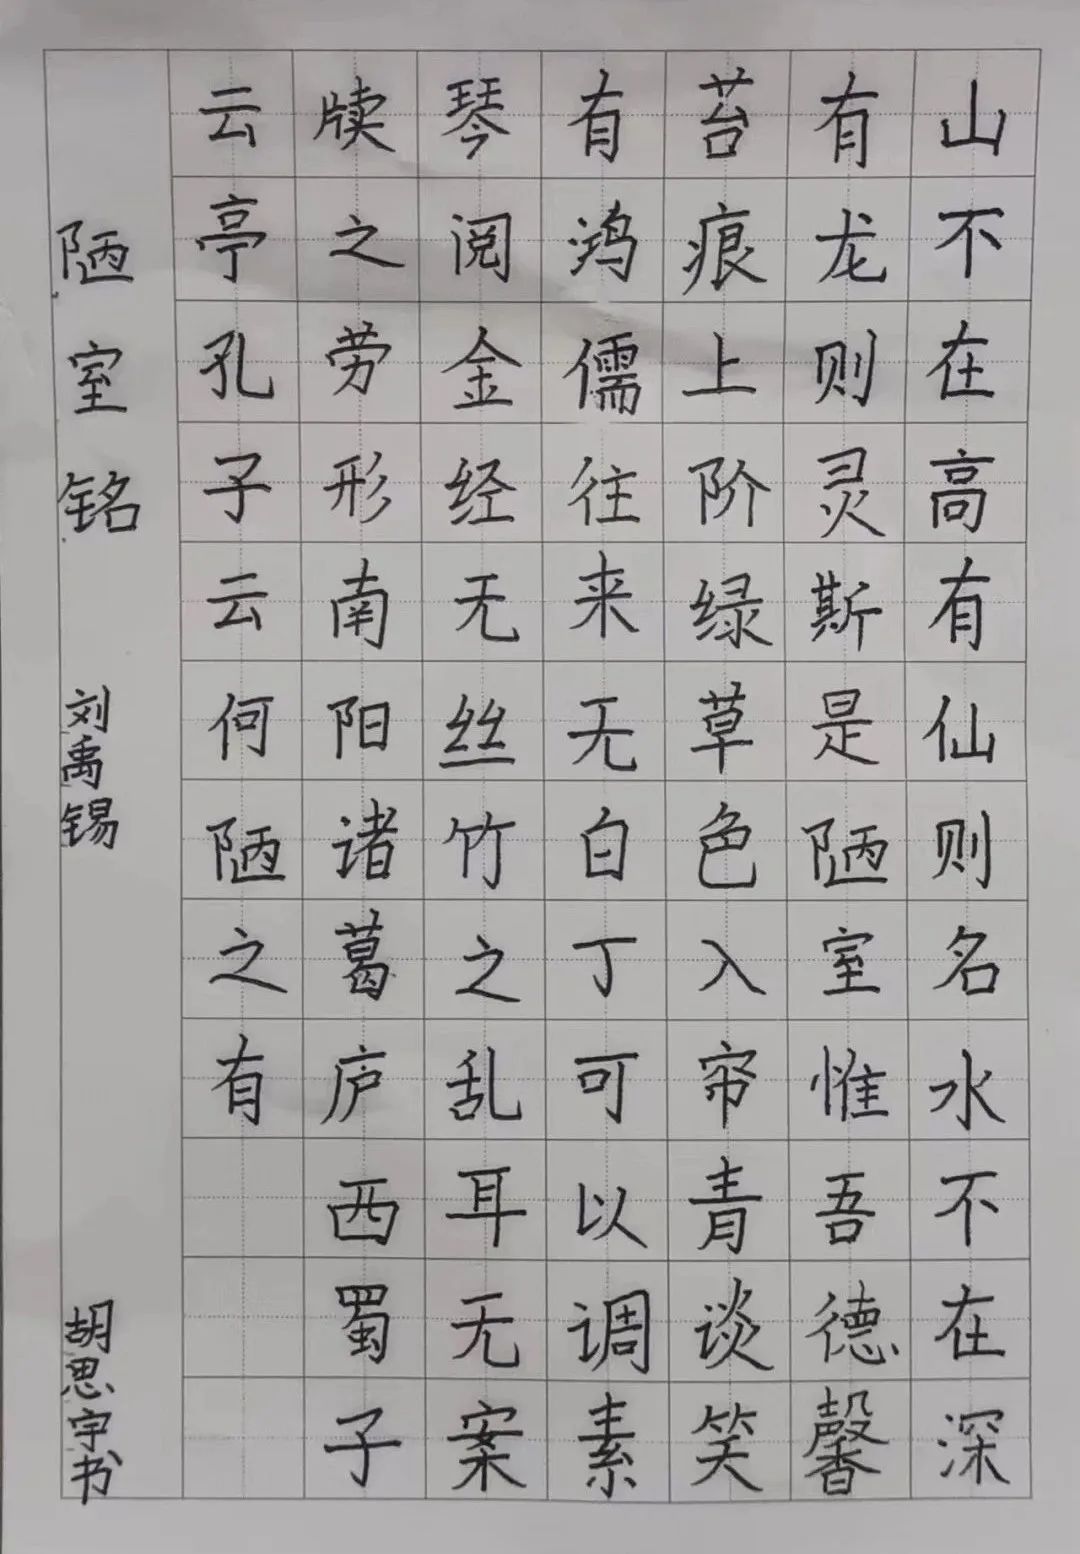 山不在高有仙则名水不在深
有龙则灵斯是陋室惟吾德馨
苔痕上阶绿草色入帘青谈笑
有鸿儒往来无白丁可以调素
琴阅金经无丝竹之乱耳无案
牍之劳形南阳诸葛庐西蜀子
云亭孔子云何陋之有
陋室铭 刘禹锡 胡思宇书